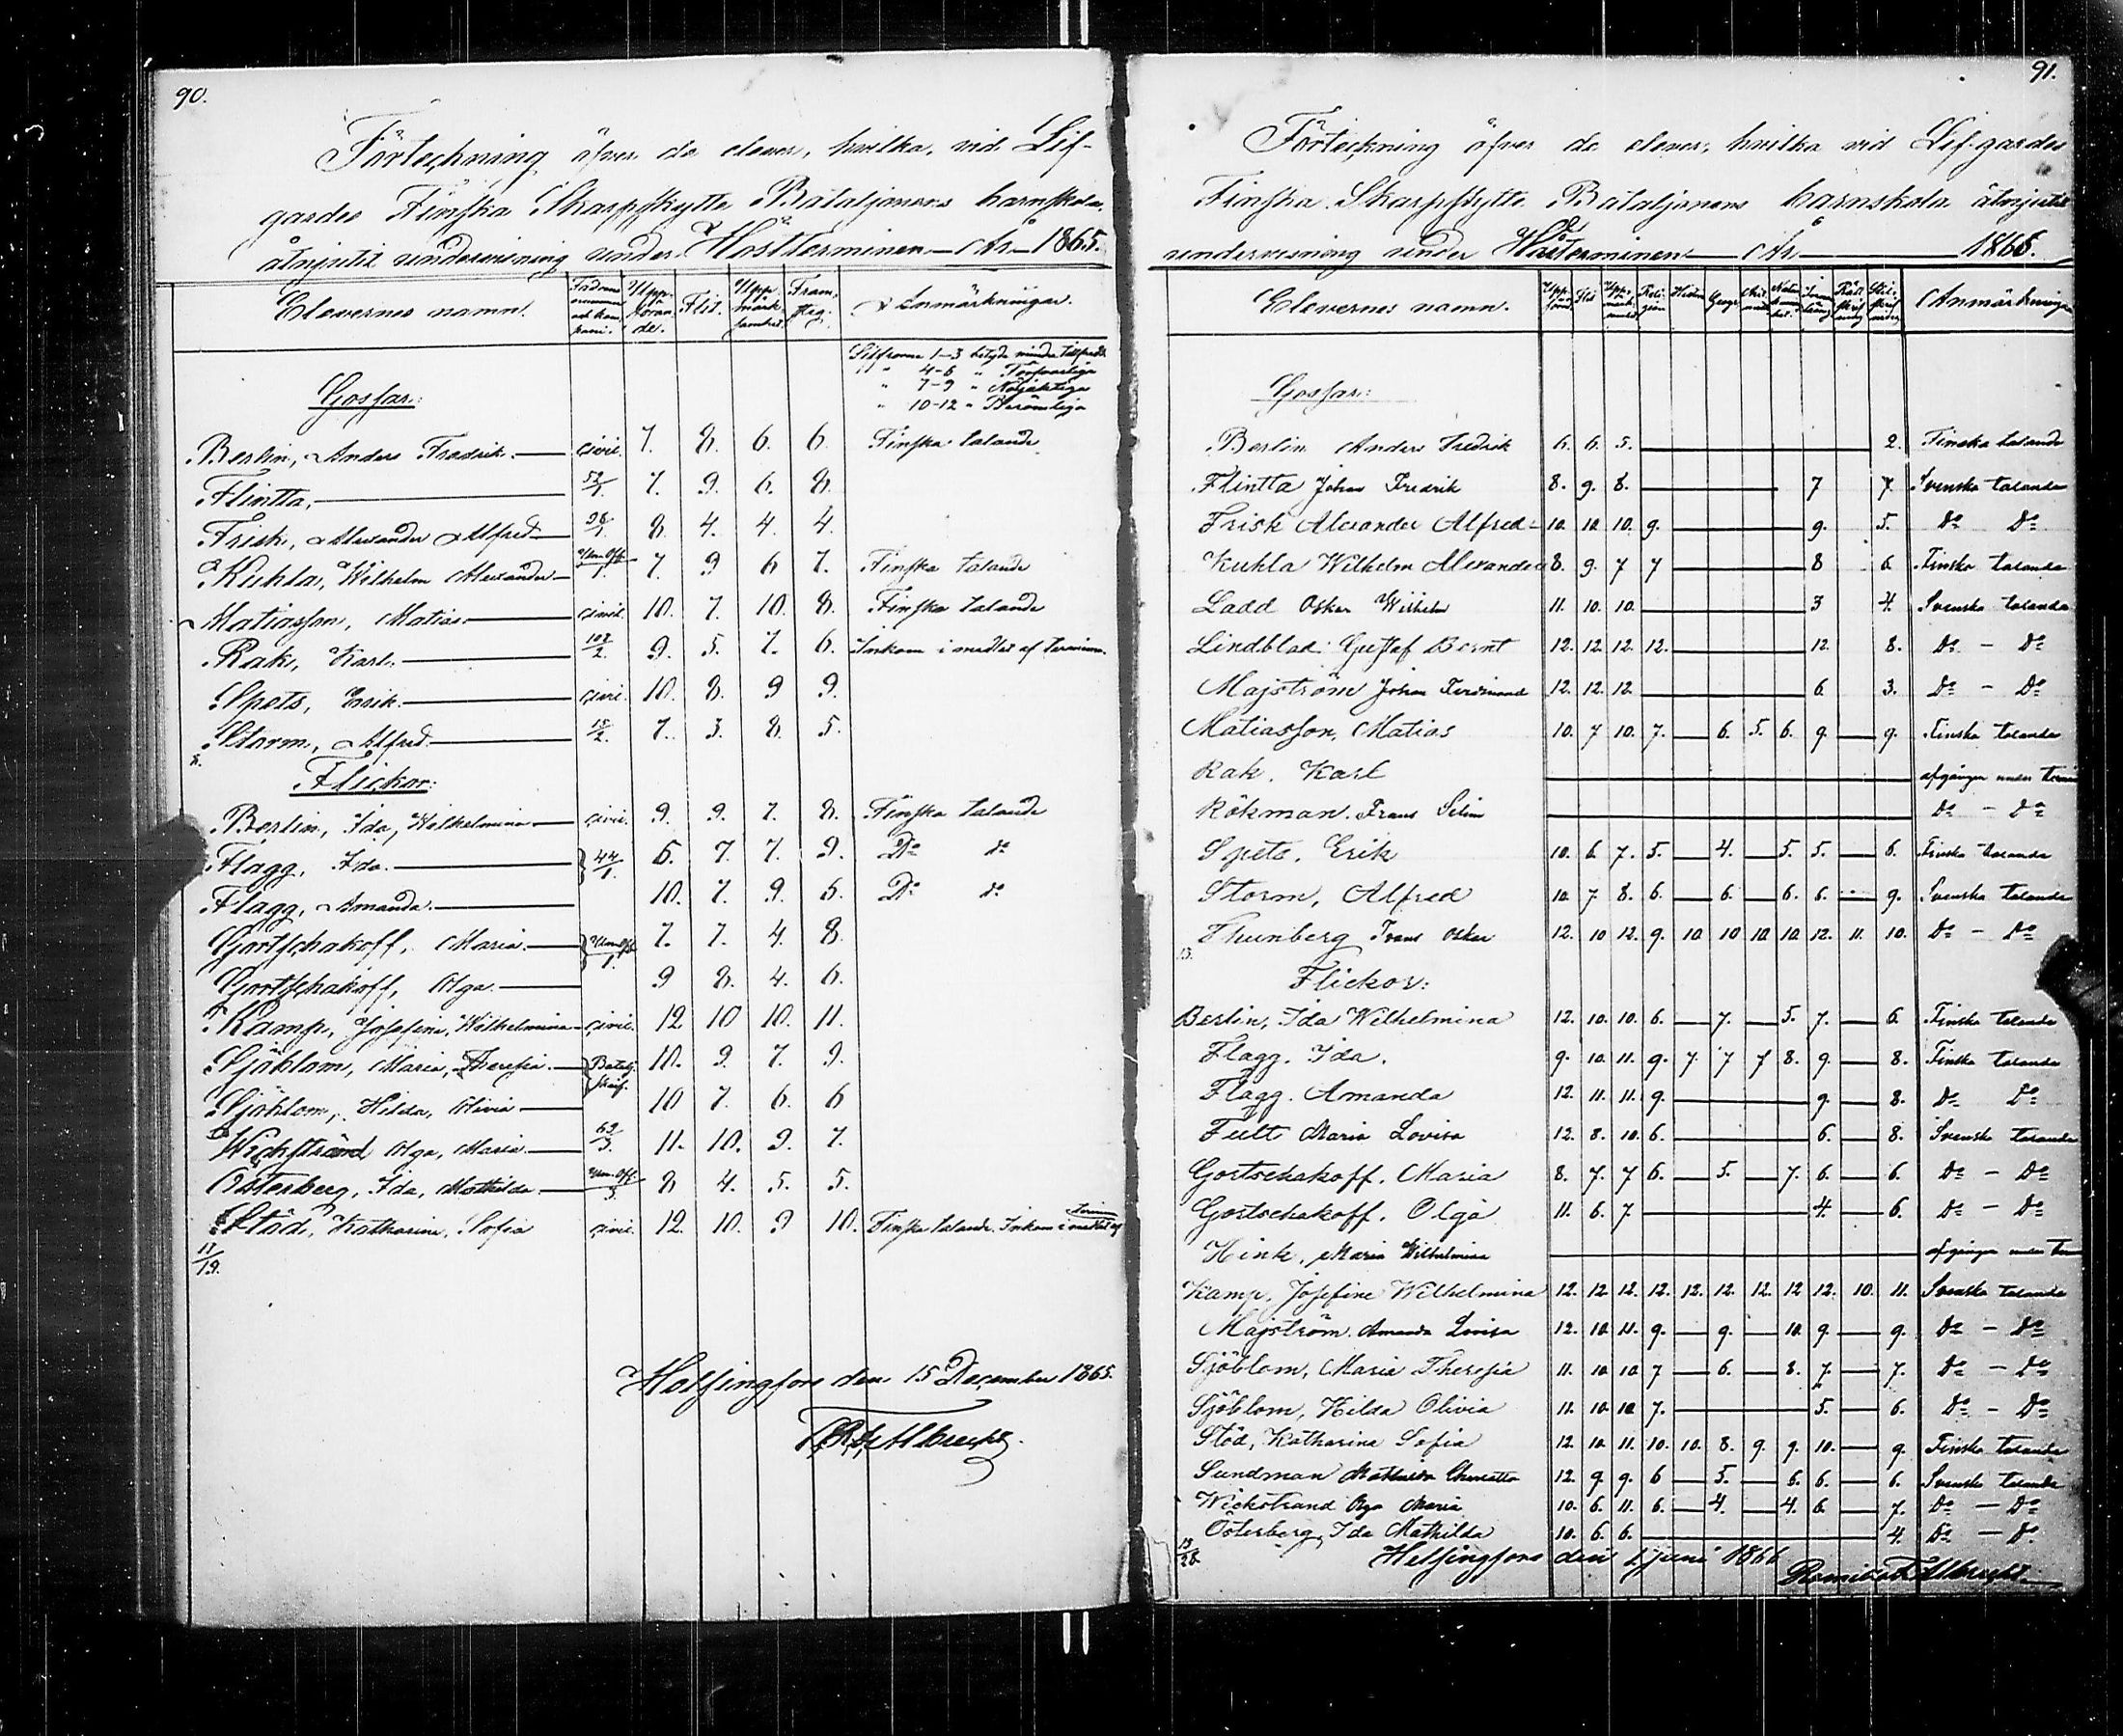 90.
Förteckning öfver de elever, hvilka, vid Lif-
gardes Finska Skarpskytte Bataljonens barnskola
åtnjutit undervisning under Höstterminen År 1865.
Elevernes namn. Fadrens nummer och kompani. Uppförande. Flit. Uppmärksamhet. Framsteg. Anmärkningar.
Siffrorna 1-3 betyda mindre
" 4-6 " Försvarliga
" 7-9 " Nöjaktiga
" 10-12 " Berömliga
Gossar:
Berlin, Anders Fredrik. civil. 7. 8. 6. 6. Finska talande
Flintta, 52/1. 7. 9. 6. 8.
Frisk, Alexander Alfred 96/1. 8. 4. 4. 4.
Kuhla, Wilhelm Alexander Un. Off./1. 7. 9 6 7. Finska talande
Matiasson, Matias civil. 10. 7. 10. 8. Finska talande
Rak, Karl. 102/2. 9. 5. 7. 6. Inkom i medlet af terminen.
Spets, Erik. civil. 10. 8. 9 9.
8. Storm, Alfred. 15/2. 7. 3. 8. 5.
Flickor:
Berlin, Ida, Wilhelmina civil. 9. 9. 7. 8. Finska talande
Flagg, Ida. 44/1. 6. 7. 7. 9. Do do
Flagg, Amanda. 10. 7. 9. 6. Do do
Gortschakoff, Maria. Un. Off./1. 7. 7. 4. 8.
Gortschakoff, Olga. 9 8. 4. 6.
Kamp, Josefina, Wilhelmina civil. 12 10 10. 11.
Sjöblom, Maria, Theresia. Batalj. skrif. 10. 9. 7. 9.
Sjöblom, Hilda, Olivia 10 7. 6. 6
Wickstrand, Olga, Maria. 69/3. 11. 10. 9. 7.
Österberg, Ida, Mathilda. Un. Off./3. 8 4. 5. 5.
Stöd, Katharina, Sofia civil. 12. 10. 9 10. Finska talande. Inkom i medlet af termin
11/19.
Helsingfors den 15 December 1865.
Albrecht.
91.
Förteckning öfver de elever, hvilka vid Lif-gardes
Finska Skarpskytte Bataljonens barnskola åtnjutit
undervisning under Höstterminen År 1866.
Elevernes namn. Uppförand. Flit Uppmärksamhet Religion Histor. Geogr. Innanläsning Rättskrifning Anmärkningar
Gossar:
Berlin Anders Fredrik 6. 6. 5. 2. Finska talande
Flintta Johan Fredrik 8. 9. 8. 7 7. Svenska talande
Frisk Alexander Alfred 10. 10. 10. 9. 9. 5. Do Do
Kuhla Wilhelm Alexander 8. 9. 7 7 8 6. Finska talande
Ladd Oskar Wilhelm 11. 10. 10. 3 4. Svenska talande
Lindblad. Gustaf Bernt 12. 12. 12. 12. 12. 8. Do - Do
Majström Johan Ferdinand 12. 12. 12. 6. 3. Do - Do
Matiasson, Matias 10. 7 10. 7. 6. 5. 6. 9. 9. Finska talande
Rak. Karl afgången under
Rökman. Frans Selim Do - Do
Spets. Erik 10. 6. 7. 5. 4. 5. 5. 6. Finska talande
Storm, Alfred 10. 7 8. 6. 6. 6. 6. 9. Svenska talande
13. Thunberg Frans Oskar 12. 10 12. 9. 10. 10 10 10. 12. 11. 10. Do - Do
Flickor:
Berlin, Ida Wilhelmina 12. 10. 10. 6. 7. 5. 7. 6. Finska talande
Flagg. Ida. 9. 10. 11. 9. 7. 7 7 8. 9. 8. Finska talande
Flagg. Amanda 12. 11. 11. 9. 9. 8. Do Do
Fult Maria Lovisa 12. 8. 10. 6. 6. 8. Svenska talande
Gortschakoff. Maria 8. 7. 7 6. 5. 7. 6. 6. Do - Do
Gortschakoff. Olga 11. 6. 7 4. 6. Do - Do
Hink, Maria Wilhelmina afgången under
Kamp, Josefine Wilhelmina 12. 12. 12. 12. 12. 12. 12. 12 12. 10. 11. Svenska talande
Majström. Amanda Lovisa 12. 10. 11. 9. 9. 10. 9. 9. Do - Do
Sjöblom, Maria Theresia 11. 10 10 7 6. 8. 7. 7. Do - Do
Sjöblom, Hilda Olivia 11. 10 10 7. 5. 6. Do - Do
Stöd, Katharina Sofia 12. 10. 11. 10. 10. 8. 9. 9. 10. 9. Finska talande
Sundman Mathilda 12. 9. 9. 6 5. 6. 6. 6. Svenska talande
Wickstrand Olga Maria 10. 6. 11. 6. 4. 4. 6. 7. Do - Do
Österberg, Ida Mathilda 10. 6. 6. 4. Do - Do
13/28. Helsingfors den 1 juni 1866 Albrecht.